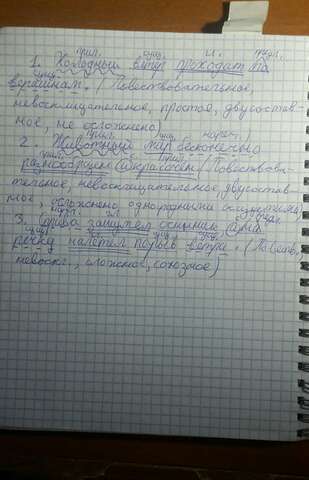 прил. сущ. гл. предл.
1. Холодный ветер проходит по
сущ.
вершинам. (Повествовательное,
невосклицательное, простое, двусостав-
ное, не осложнено)
прил. сущ. нареч.
2. Животный мир бесконечно
прил. с. прил.
разнообразен и красочен (Повествова-
тельное, невосклицательное, двусостав-
ное, осложнено однородными сказуемыми)
3. Справа зашумел осинник и на
речку налетел порыв ветра. (Повеств.,
невоскл., сложное, союзное)